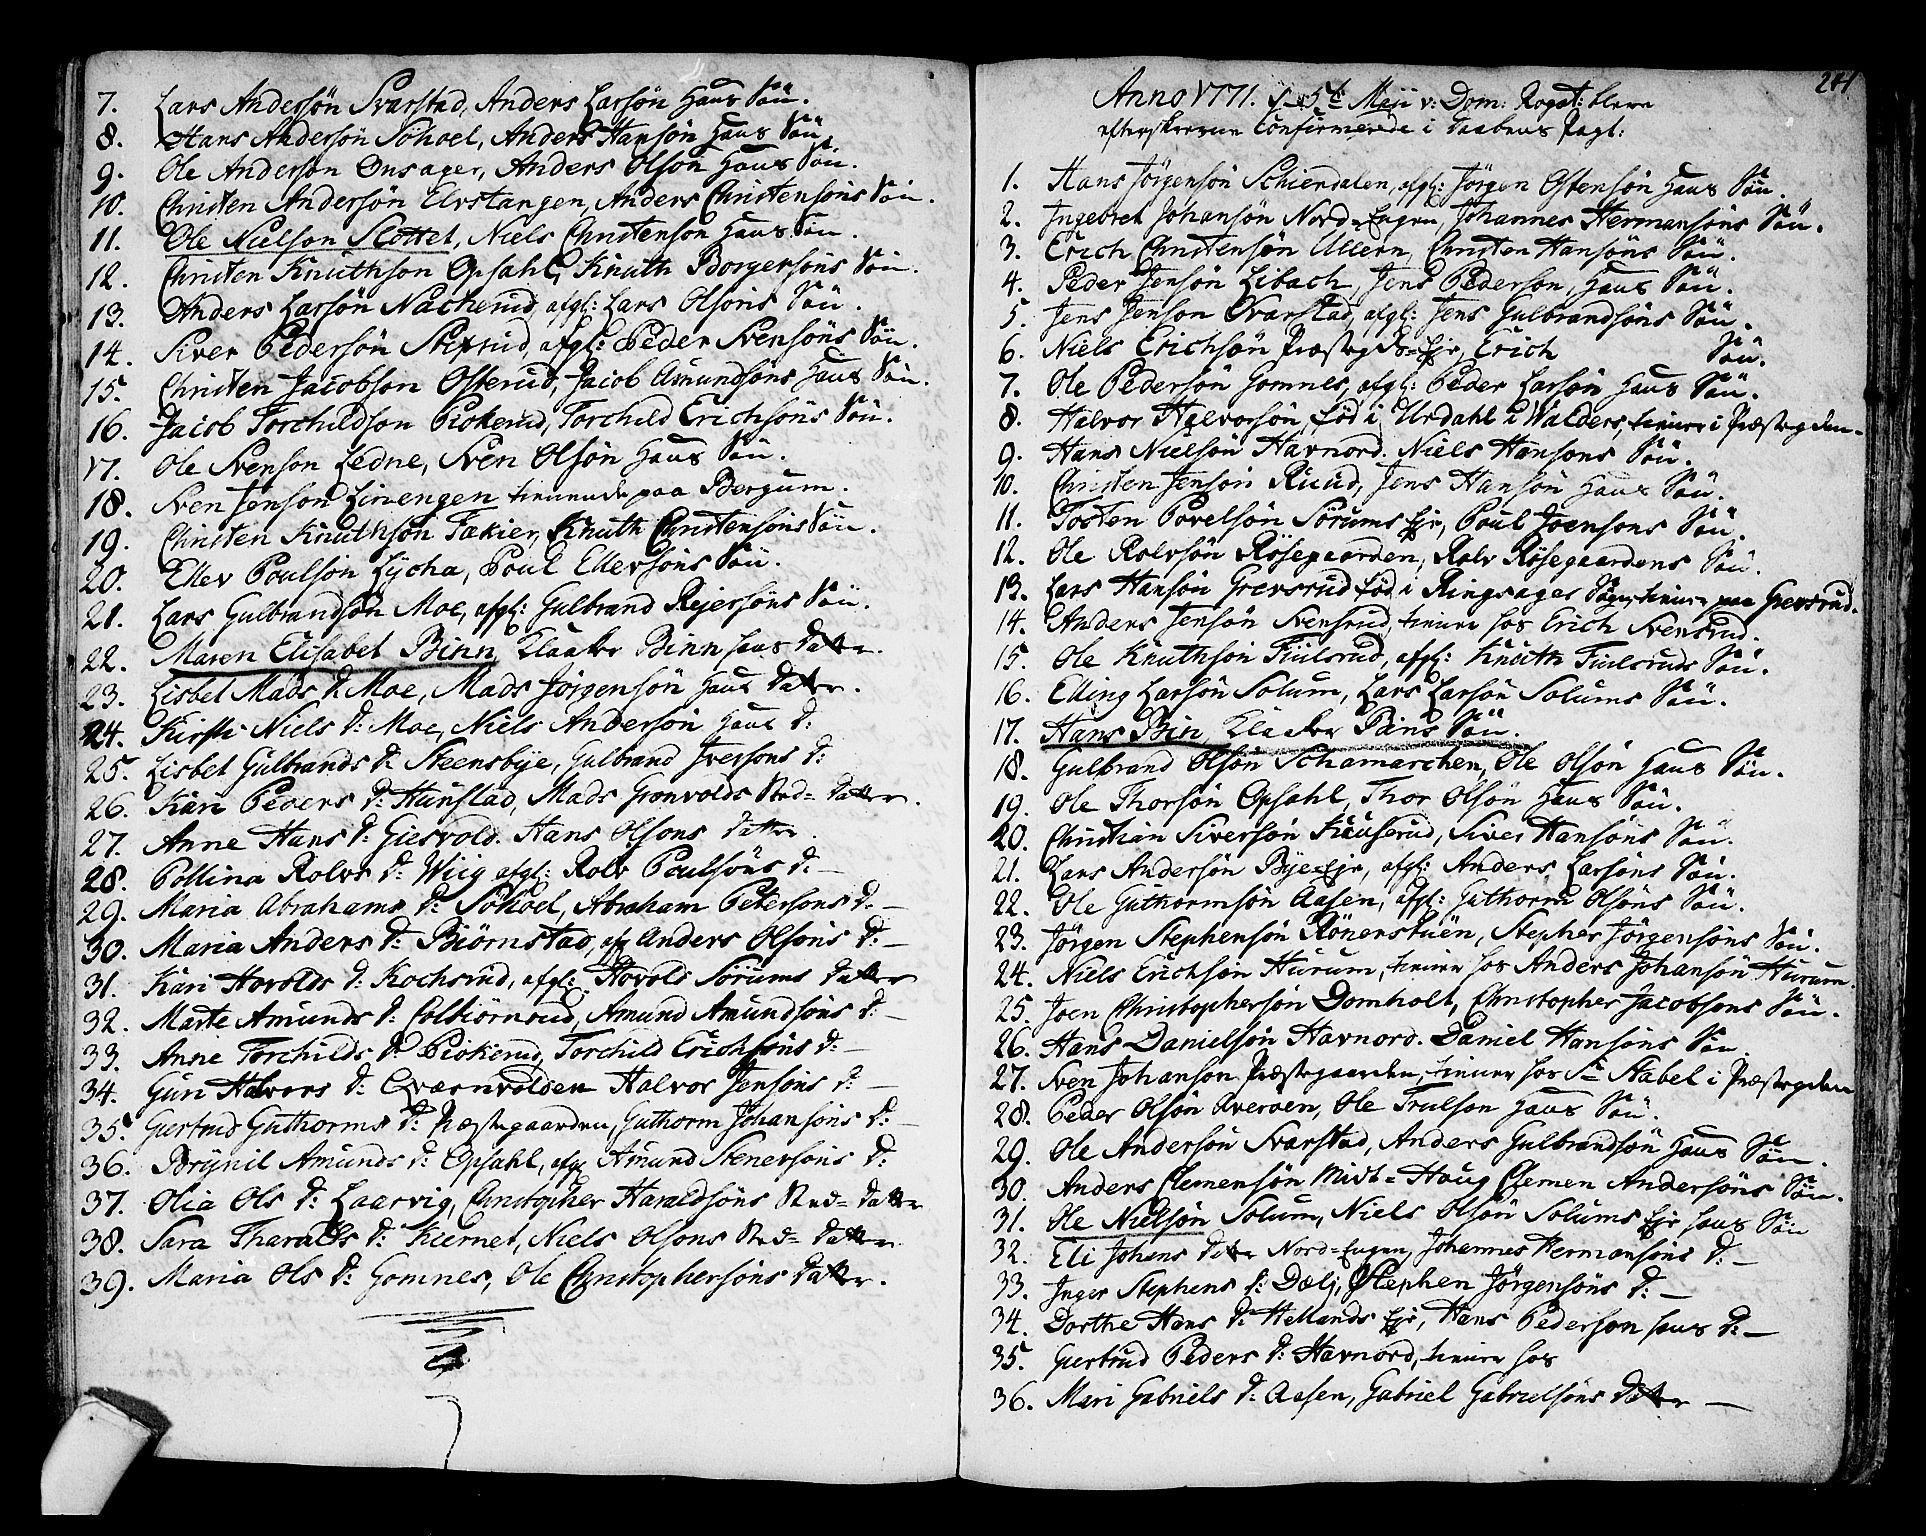 7. Lars Andersön Svarstad, Anders Larsön Hans Sön.
8. Hans Andersön Söhoel, Anders Hansön Hans Sön
9. Ole Anderson Onsager, Anders Olson Hans Sön.
10. Christen Andersön Elvstangen, Anders Christensöns Sön.
11. Ole Nielson Slottet, Niels Christenson Hans Sön.
12. Christen Knuthson Opsahl, Knuth Borgersöns Sön.
13. Anders Larsön Nacherud, afgl: Lars Olsöns Sön.
14. Siver Pedersön Stixrud, afgl: Peder Svensöns Sön.
15. Christen Jacobson Osterud, Jacob Amundsöns Hans Sön.
16. Jacob Torchildson Piokerud, Torchild Erichsöns Sön.
17. Ole Svenson Ledne, Sven Olsön Hans Sön.
18. Sven Jenson Linengen tienende paa Bergum.
19. Christen Knuthson Fækier, Knuth Christensöns Sön.
20. Ellev Poulsön Lycha, Poul Ellevsöns Sön.
21. Lars Gulbrandsön Moe, afgl: Gulbrand Rejersöns Sön.
22. Maren Elisabet Binn, Klaaker Binn hans Datter
23. Lisbet Mads D: Moe, Mads Jörgensön Hans Datter.
24. Kirsti Niels D: Moe, Niels Andersön Hans D:
25. Lisbet Gulbrands D: Steensbye, Gulbrand Iversons D:
26. Kari Peders D: Hunstad, Mads Gronvolds Sted= Datter.
27. Anne Hans D: Giesvold. Hans Olsons Datter.
28. Pollina Rolvs D: Wiig afgl: Rolv Poulsöns D: —
29. Maria Abrahams D: Söhoel, Abraham Petersons D: —
30. Maria Anders D: Biörnstad, afg Anders Olsöns D: —
31. Kari Hovolds D: Kochsrud, afgl: Hovold Sörums Datter
32. Marte Amunds D: Colbiörnrud, Amund Amundsöns D: —
33. Anne Torchilds D: Piokerud, Torchild Erichsöns D: —
34. Guri Halvors D: Qværnvolden Halvor Jensöns D: —
35. Giertrud Guthorms D: Præstegaarden, Guthorm Johansöns D: —
36. Brynil Amunds D: Opsahl, afg Amund Stenersöns D:
37. Olia Ols D: Laarvig, Christopher Haraldsöns Sted= Datter
38. Sara Tharalds D: Kiemet, Niels Olsöns Sted= Datter
39. Maria Ols D: Gomnes, Ole Christophersöns Datter.
241
Anno 1771. d 5te Maji v: Dom: Rogat: bleve
efterskrevne Confirmerede i Taabens Pagt:
1. Hans Jörgensön Schierdalen, afgl: Jörgen Ostensön Hans Sön.
2. Ingebret Johansön Nord=Engen, Johannes Hermansöns Sön.
3. Erich Christensön Ullern, Christen Hansöns Sön.
4. Peder Jensön Libach, Jens Pederson, Hans Sön.
5. Jens Jenson Svarstad, afgl: Jens Gulbrandsöns Sön.
6. Niels Erichsön Præstegds=Eje, Erich Sön.
7. Ole Pedersön Gomnes, afgl: Peder Larsön Hans Sön.
8. Halvor Halvorsön, föd i Urdahl i Walders, tiener i Præstegden.
9. Hans Nielsön Havnord. Niels Hansons Sön.
10. Christen Jensön Ruud, Jens Hansön Hans Sön.
11. Tosten Povelsön Sorums Eje, Poul Joensons Sön.
12. Ole Rolvsön Rösegaarden, Rolv Rösegaardens Sön.
13. Lars Hansön Grevsrud föd i Ringsager Sogn, tiener paa Grevsrud.
14. Anders Jensön Svensrud, tiener hos Erich Svensrud.
15. Ole Knuthsön Fiulsrud, afgl: Knuth Fiulsruds Sön.
16. Elling Larsön Solum, Lars Larsön Solums Sön.
17. Hans Bin, Klaaker Bins Sön.
18. Gulbrand Olsön Schamarchen, Ole Olsön Hans Sön.
19. Ole Thorsön Opsahl, Thor Olsön Hans Sön.
20. Christian Siversön Knuserud, Siver Hansöns Sön.
21. Lars Andersön Bye=Eje, afgl: Anders Larsöns Sön.
22. Ole Guthormsön Aasen, afgl: Guthorm Olsöns Sön.
23. Jörgen Stephensön Rönenstuen, Stephen Jörgensöns Sön.
24. Niels Erichsön Hurum, tiener hos Anders Johansön Hurum.
25. Joen Christophersön Domholt, Christopher Jacobsons Sön.
26. Hans Danielsön Havnord. Daniel Hansöns Sön
27. Sven Johanson Præstegaarden, tiener hos Sr Stabel i Præstegden
28. Peder Olsön Averöen, Ole Trulson Hans Sön.
29. Ole Andersön Svarstad, Anders Gulbrandsön Hans Sön.
30. Anders Clemensön Midt=Houg Clemen Andersöns Sön.
31. Ole Nielsön Solum, Niels Olsön Solums Eje hans Sön
32. Eli Johans Datter Nord=Engen, Johannes Hermansöns D: —
33. Inger Stephens D: Dælj, Stephen Jörgensöns D: —
34. Dorthe Hans D: Hellands Eje, Hans Pederson hans D: —
35. Giertrud Peders D: Havnord, tiener hos
36. Mari Gabriels D: Aasen, Gabriel Gabrielsöns Datter —